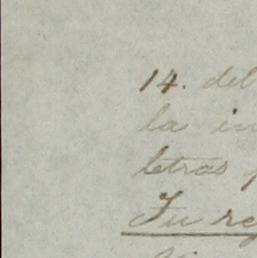 14. del
la in
letras
Tu reg